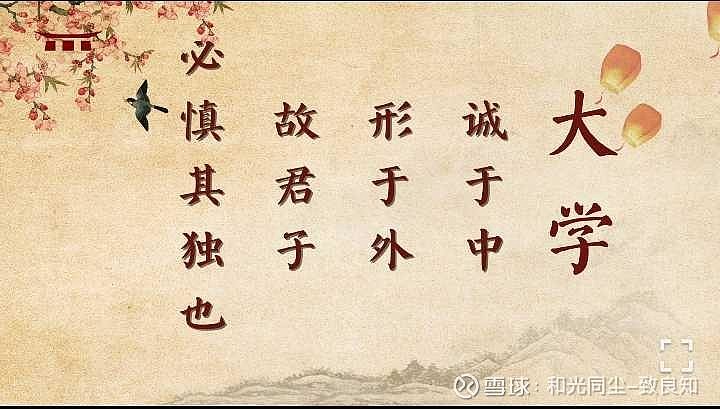 大学
诚于中
形于外
故君子
必慎其独也
雪球：和光同尘-致良知